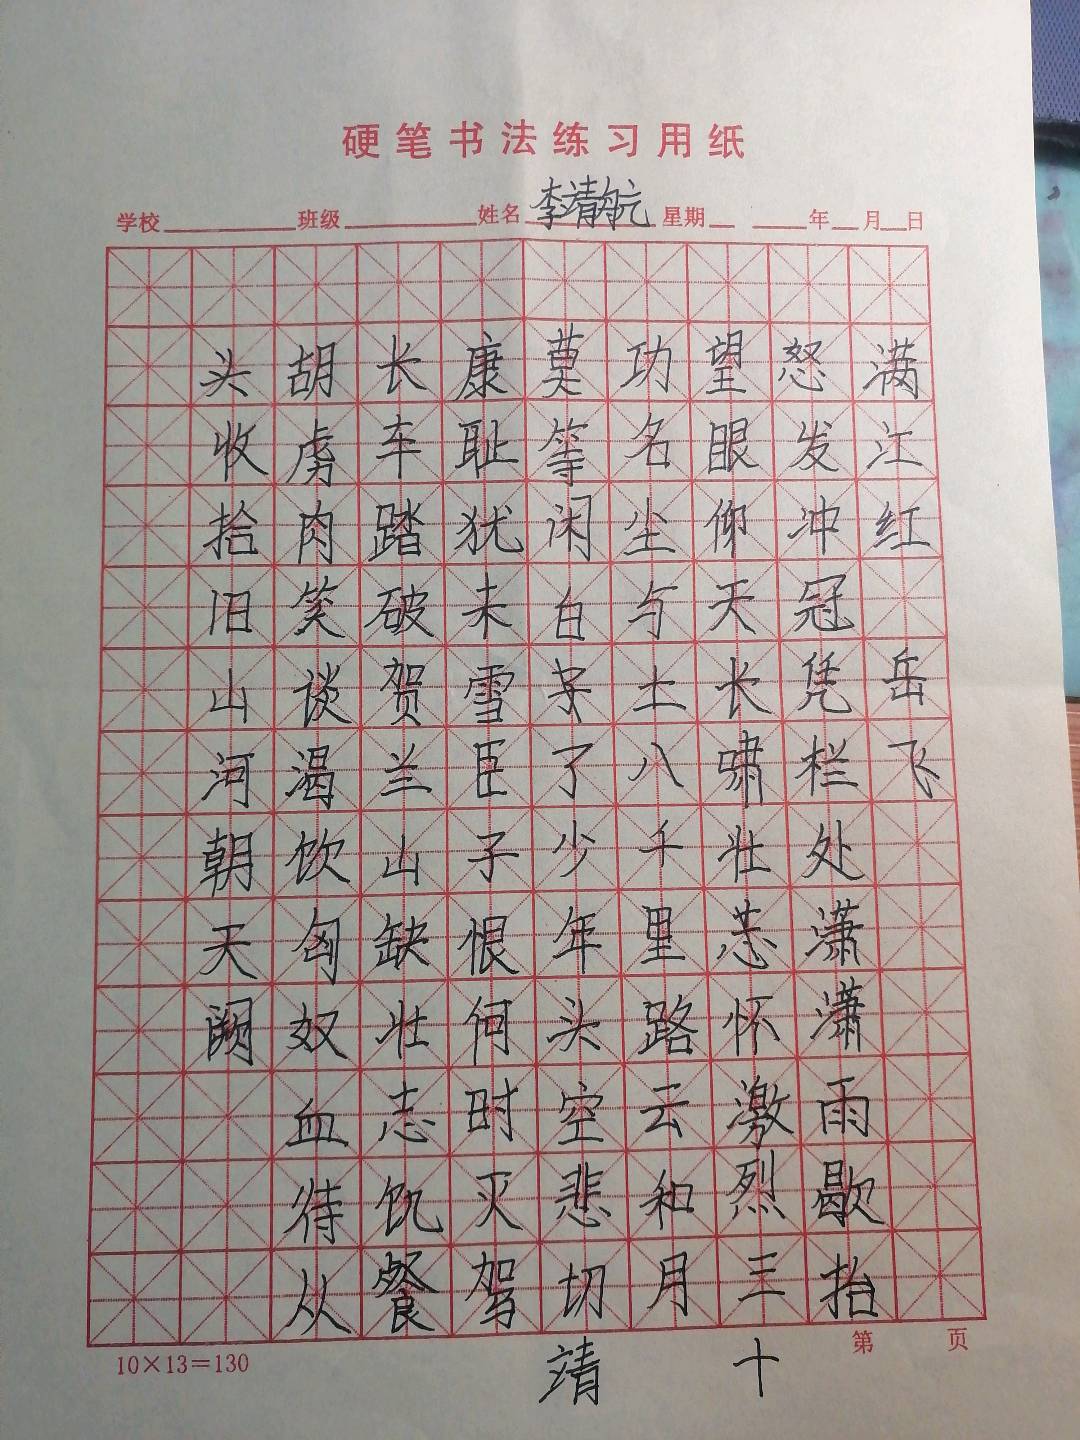 硬笔书法练习用纸
学校 班级 姓名 李靖航 星期 年 月 日
满江红 岳飞
怒发冲冠凭栏处潇潇雨歇抬
望眼仰天长啸壮志怀激烈三十
功名尘与土八千里路云和月
莫等闲白了少年头空悲切靖
康耻犹未雪臣子恨何时灭驾
长车踏破贺兰山缺壮志饥餐
胡虏肉笑谈渴饮匈奴血待从
头收拾旧山河朝天阙
10×13=130
第 页